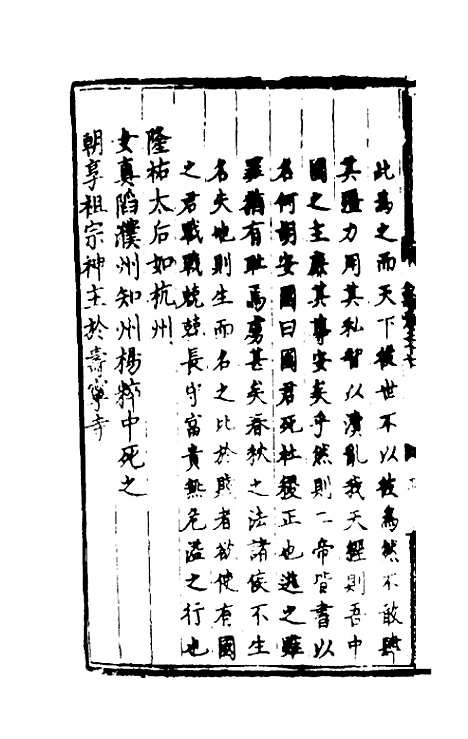 此為之而天下後世不以彼為然不敢興
其彊力用其私智以潰亂我天經則吾中
國之主廉其尊安矣乎然則二帝皆書以
名何胡安國曰國君死社稷正也逃之雖
罪猶有耻焉虜甚矣春秋之法諸侯不生
名失地則生而名之比於賤者欲使有國
之君戰戰兢兢長守富貴無危溢之行也
隆祐太后如杭州
女真陷濮州知州楊粹中死之
朝享祖宗神主於壽寧寺